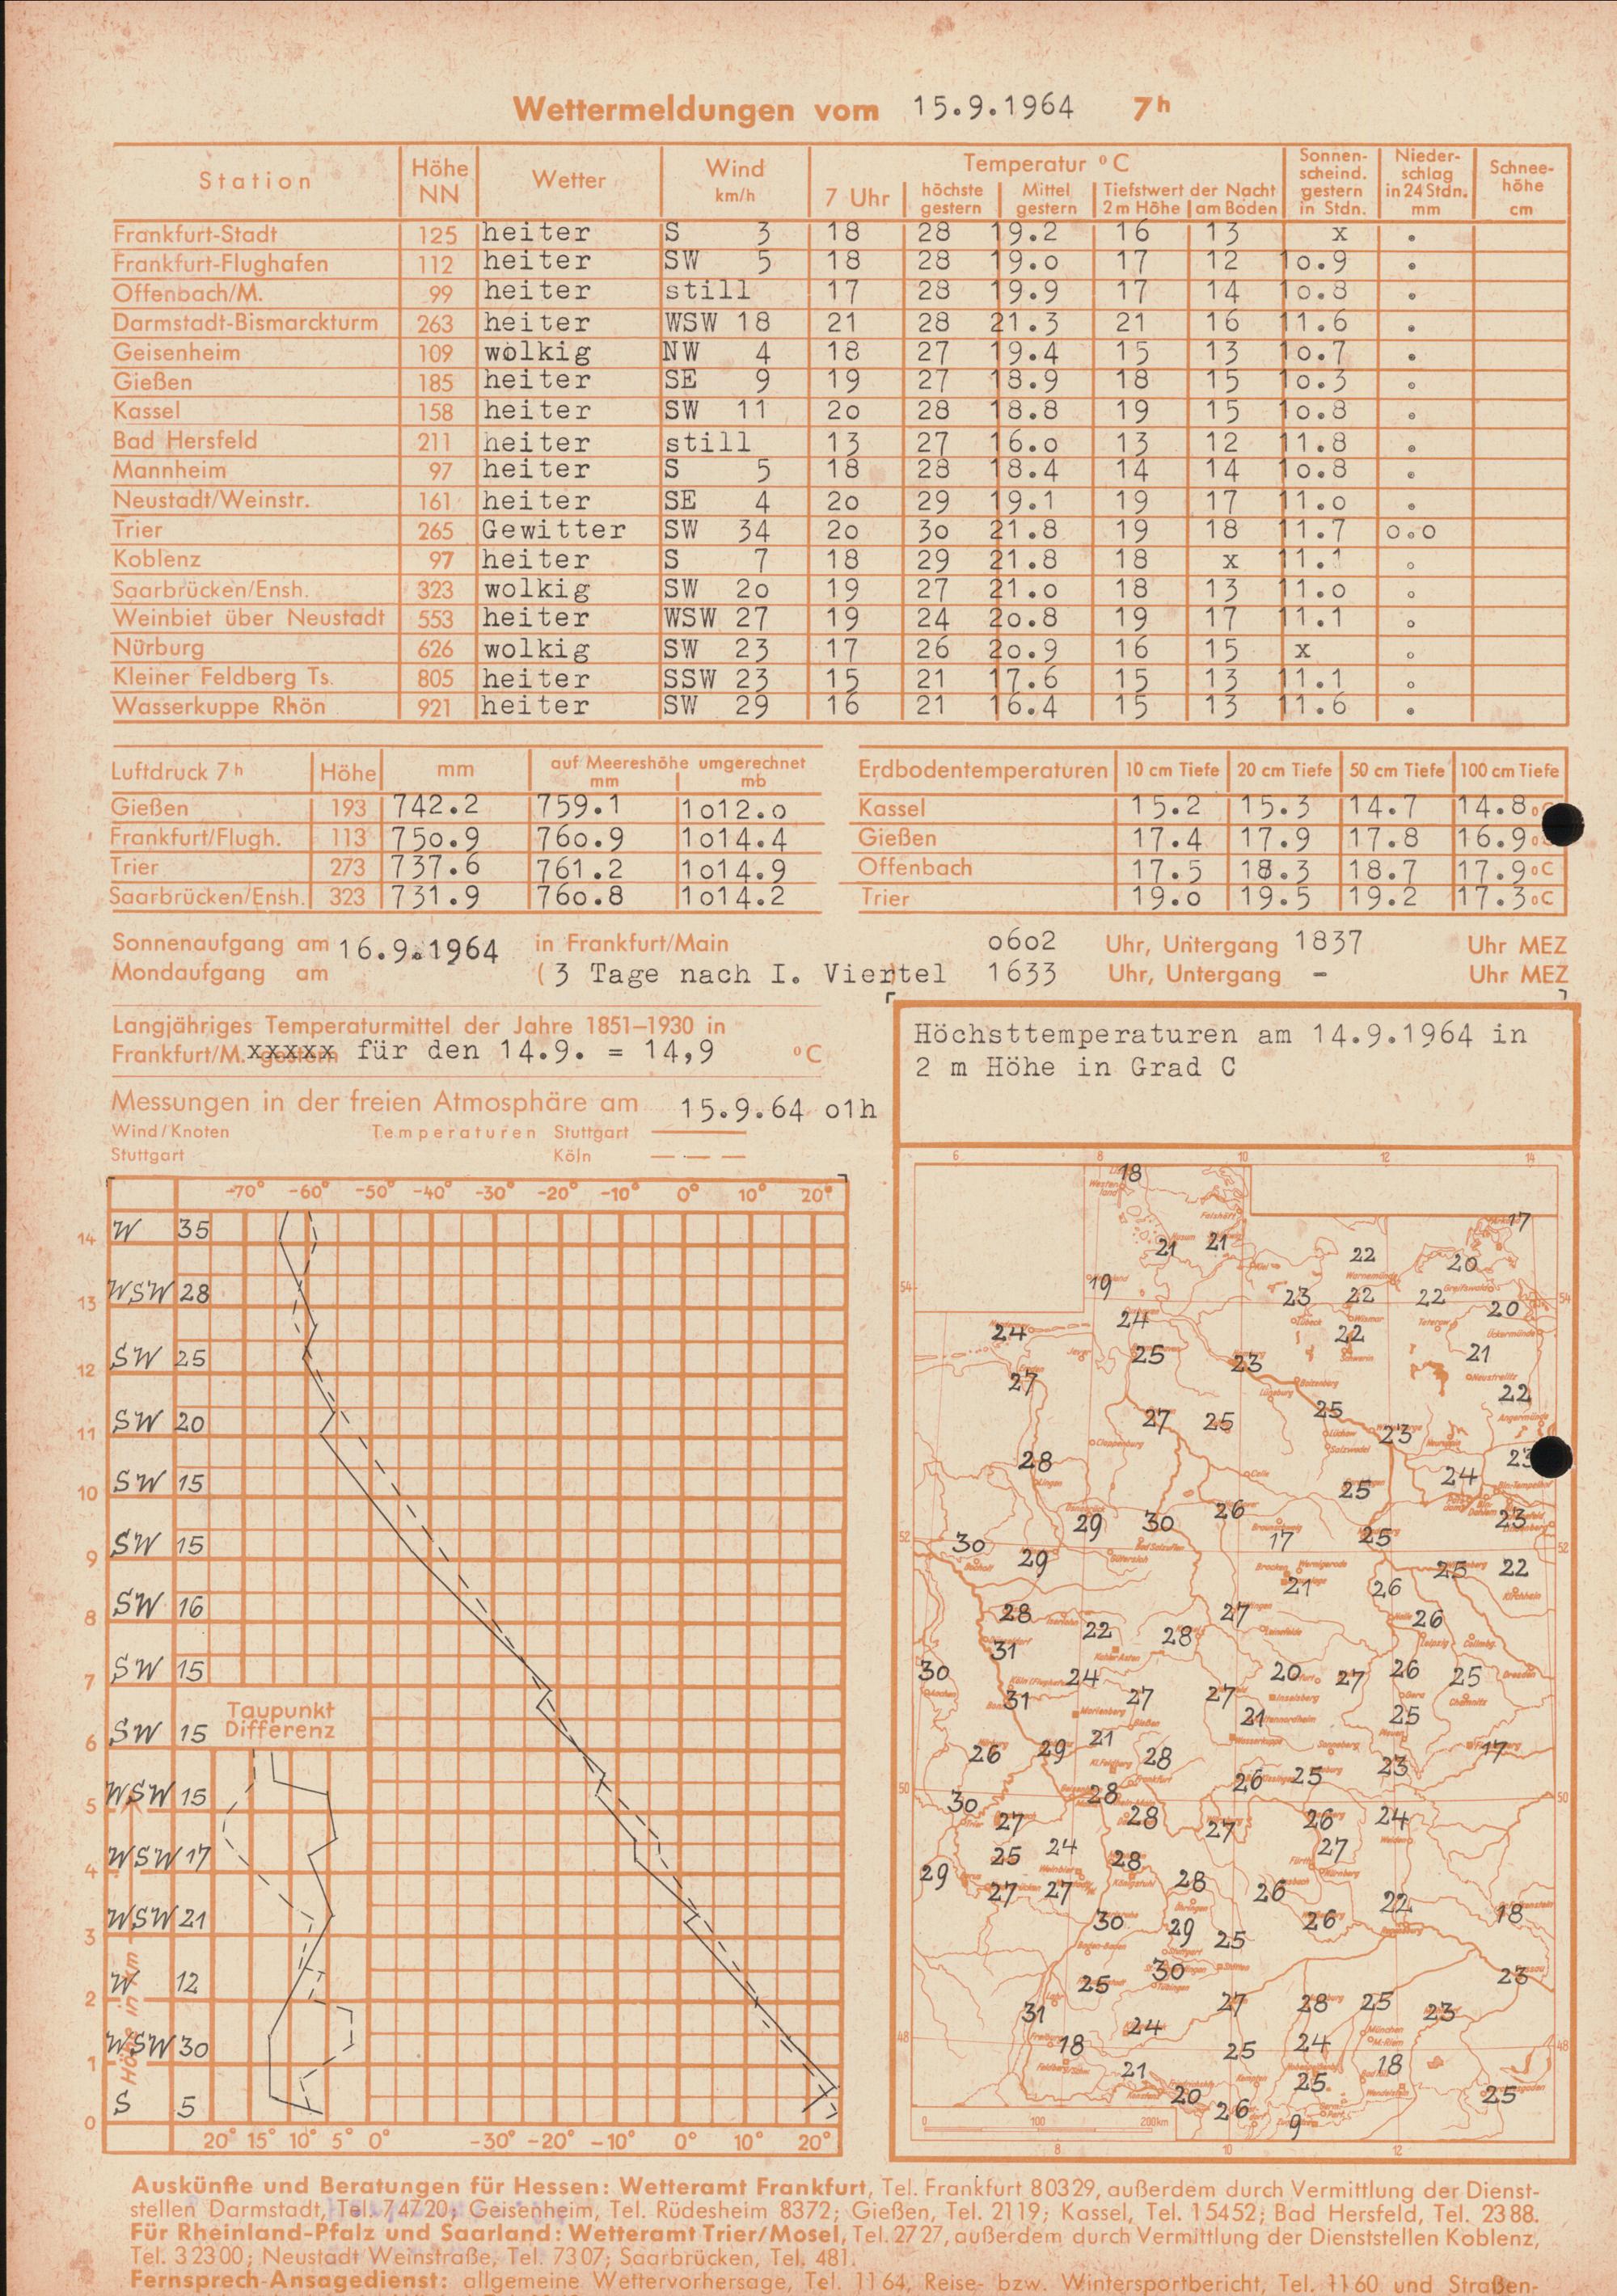 Wettermeldungen vom 15.9.1964 7h
Station Höhe NN Wetter Wind km/h Temperatur °C Sonnenscheind. gestern in Stdn. Niederschlag in 24 Stdn. mm Schneehöhe cm
7 Uhr höchste gestern Mittel gestern Tiefstwert der Nacht 2 m Höhe am Boden
Frankfurt-Stadt 125 heiter S 3 18 28 19.2 16 13 x .
Frankfurt-Flughafen 112 heiter SW 5 18 28 19.0 17 12 10.9 .
Offenbach/M. 99 heiter still 17 28 19.9 17 14 10.8 .
Darmstadt-Bismarckturm 263 heiter WSW 18 21 28 21.3 21 16 11.6 .
Geisenheim 109 wolkig NW 4 18 27 19.4 15 13 10.7 .
Gießen 185 heiter SE 9 19 27 18.9 18 15 10.3 .
Kassel 158 heiter SW 11 20 28 18.8 19 15 10.8 .
Bad Hersfeld 211 heiter still 13 27 16.0 13 12 11.8 .
Mannheim 97 heiter S 5 18 28 18.4 14 14 10.8 .
Neustadt/Weinstr. 161 heiter SE 4 20 29 19.1 19 17 11.0 .
Trier 265 Gewitter SW 34 20 30 21.8 19 18 11.7 0.0
Koblenz 97 heiter S 7 18 29 21.8 18 x 11.1 .
Saarbrücken/Ensh. 323 wolkig SW 20 19 27 21.0 18 13 11.0 .
Weinbiet über Neustadt 553 heiter WSW 27 19 24 20.8 19 17 11.1 .
Nürburg 626 wolkig SW 23 17 26 20.9 16 15 x .
Kleiner Feldberg Ts. 805 heiter SSW 23 15 21 17.6 15 13 11.1 .
Wasserkuppe Rhön 921 heiter SW 29 16 21 16.4 15 13 11.6 .
Luftdruck 7h Höhe mm auf Meereshöhe umgerechnet mm mb
Gießen 193 742.2 759.1 1012.0
Frankfurt/Flugh. 113 750.9 760.9 1014.4
Trier 273 737.6 761.2 1014.9
Saarbrücken/Ensh. 323 731.9 760.8 1014.2
Erdbodentemperaturen 10 cm Tiefe 20 cm Tiefe 50 cm Tiefe 100 cm Tiefe
Kassel 15.2 15.3 14.7 14.8
Gießen 17.4 17.9 17.8 16.9
Offenbach 17.5 18.3 18.7 17.9 °C
Trier 19.0 19.5 19.2 17.3 °C
Sonnenaufgang am 16.9.1964 in Frankfurt/Main 0602 Uhr, Untergang 1837 Uhr MEZ
Mondaufgang am (3 Tage nach I. Viertel 1633 Uhr, Untergang - Uhr MEZ
Langjähriges Temperaturmittel der Jahre 1851–1930 in
Frankfurt/M. xxxxx für den 14.9. = 14,9 °C
Messungen in der freien Atmosphäre am 15.9.64 01h
Wind/Knoten Temperaturen Stuttgart
Stuttgart Köln
-70° -60° -50° -40° -30° -20° -10° 0° 10° 20°
14 W 35
13 WSW 28
12 SW 25
11 SW 20
10 SW 15
9 SW 15
8 SW 16
7 SW 15
Taupunkt
Differenz
6 SW 15
5 WSW 15
4 WSW 17
3 WSW 21
2 W 12
1 WSW 30
0 S 5
Höhe in km
20° 15° 10° 5° 0° -30° -20° -10° 0° 10° 20°
Höchsttemperaturen am 14.9.1964 in
2 m Höhe in Grad C
6 8 10 12 14
18
17
21 21 22 20
19 23 22 22 20
24 24 22
25 23 21
27 22
27 25 25 23
28 24 23
25
29 30 26 23
30 29 17 25
21 26 25 22
28 22 28 27 26
31
30 24 20 27 26 25
31 27 27 21 25
26 29 21 28 23 17
26 25
30 28
27 28 27 26 24
25 24 28 27
29 27 27 28 26 22
30 29 26 18
25
25 30 23
31 27 28 25 23
24
18 25 24
21 18
20 25 25
26 9
0 100 200km
8 10 12
Auskünfte und Beratungen für Hessen: Wetteramt Frankfurt, Tel. Frankfurt 80329, außerdem durch Vermittlung der Dienst-
stellen Darmstadt, Tel. 74720; Geisenheim, Tel. Rüdesheim 8372; Gießen, Tel. 2119; Kassel, Tel. 15452; Bad Hersfeld, Tel. 2388.
Für Rheinland-Pfalz und Saarland: Wetteramt Trier/Mosel, Tel. 2727, außerdem durch Vermittlung der Dienststellen Koblenz,
Tel. 32300; Neustadt Weinstraße, Tel. 7307; Saarbrücken, Tel. 481.
Fernsprech-Ansagedienst: allgemeine Wettervorhersage, Tel. 1164, Reise- bzw. Wintersportbericht, Tel. 1160 und Straßen-